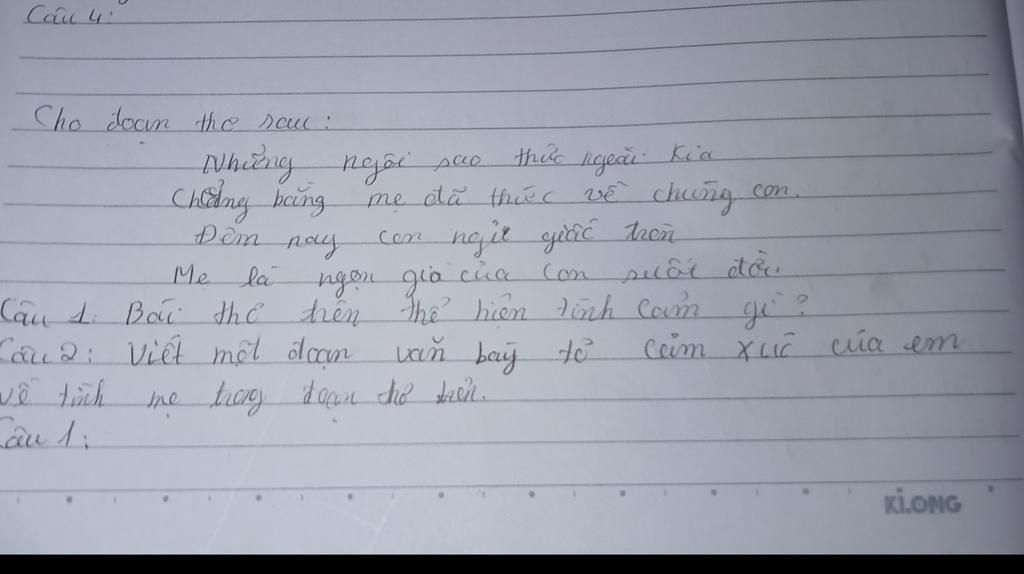 Câu 4:
Cho đoạn thơ sau:
Những ngôi sao thức ngoài kia
Chẳng bằng mẹ đã thức vì chúng con.
Đêm nay con ngủ giấc tròn
Mẹ là ngọn gió của con suốt đời.
Câu 1: Bài thơ trên thể hiện tình cảm gì?
Câu 2: Viết một đoạn văn bày tỏ cảm xúc của em
về tình mẹ trong đoạn thơ trên.
Câu 1:
KLONG